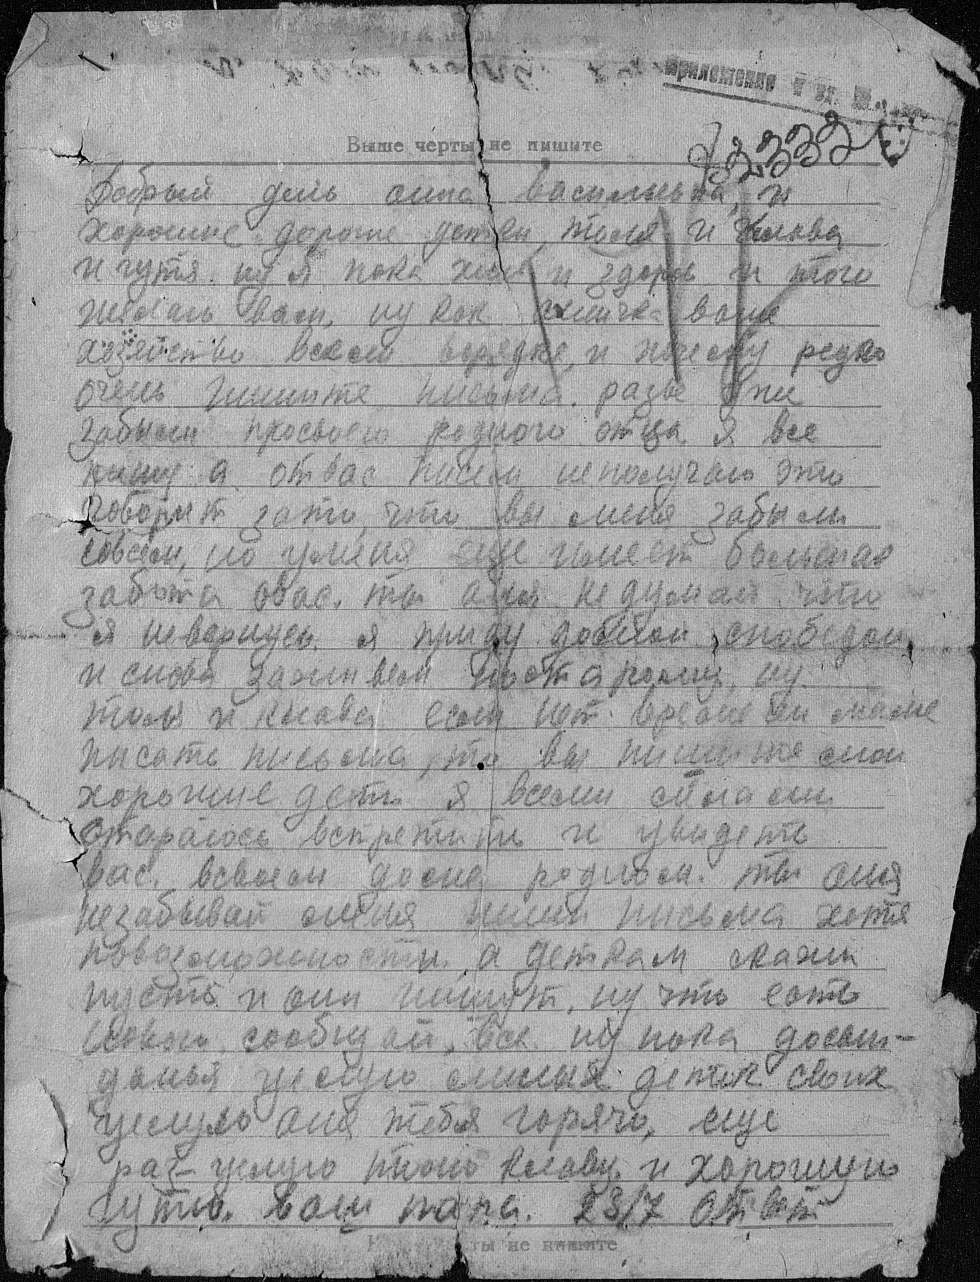 приложение
Выше черты не пишите
Добрый день анна васильевна, и
хорошие дороие детки толя и клава
и гутя. ну я пока жив и здоров и того
желаю вам, ну как ваше
хозяйство всем ворядке, и почему редко
очень пишите письма. разве уже
забыли просвоего родного отца я все
пишу а отвас писем неполучаю это
говорит зато, что вы меня забыли
совсем, но уменя еще имеет большая
забота овас. ты аня недумай что
я невернусь. я приду домой спобедой,
и снова заживем постарому, ну
толя и клава если нет времени маме
писать письма, то вы пишите мои
хорошие дети я всеми силами
стараюсь встретить и увидеть
вас. всвоем доме родном. ты аня
незабывай меня пиши письма хотя
повозможности. а деткам скажи
пусть и они пишут, ну что есть
сообщай, все. ну пока досви-
данья целую милых деток своих
целую аня тебя горячо, еще
раз целую толю клаву и хорошую
гутю. ваш папа. 23/7 ответ
ты не пишите